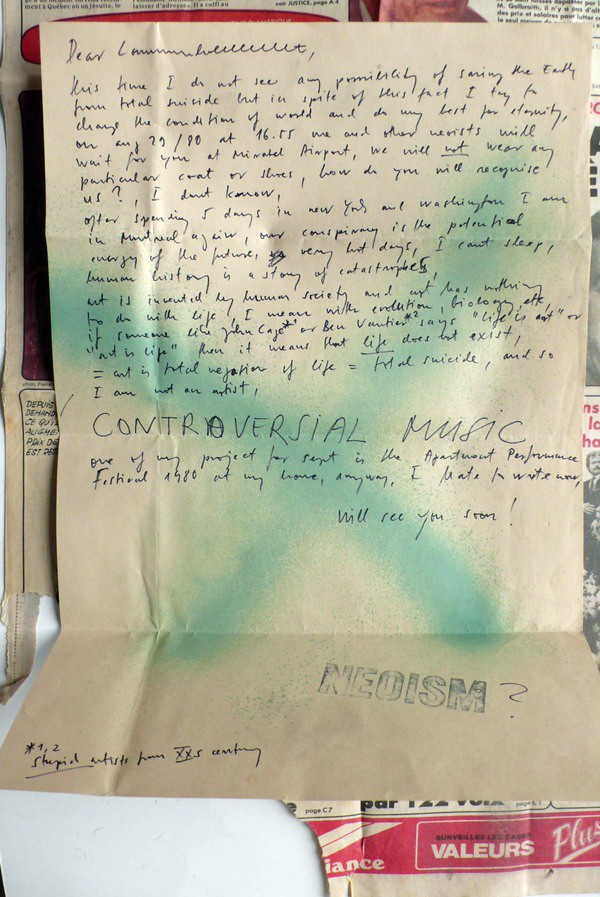 l'adresse. Il y a suffi
voir JUSTICE, page A 4
M. Galbraith, il n'y a pas d'alt
des prix et salaires pour lutter c
Dear
this time I do not see any possibility of saving the Earth
from total suicide but in spite of this fact I try to
change the condition of world and do my best for eternity,
on aug 29/80 at 16.55 me and other neoists will
wait for you at Mirabel Airport, we will not wear any
particular coat or shoes, how do you will recognise
us?, I dont know,
after spending 5 days in new York and washington I am
in Montreal again, our conspiracy is the potential
energy of the future, very hot days, I cant sleep,
human history is a story of catastrophes,
art is invented by human society and art has nothing
to do with life, I mean with evolution, biology, etc,
if someone like John Cage*1 or Ben Vautier*2 says "life is art" or
"art is life" then it means that life does not exist,
= art is total negation of life = total suicide, and so
I am not an artist,
CONTROVERSIAL MUSIC
one of my project for sept is the Apartment Performance
Festival 1980 at my home, anyway, I hate to write now,
will see you soon!
NEOISM ?
*1,2
stupid artists from XXs century
DEPUIS
DEMAND
CE QU'I
AUGMEN
PRIX DE
EST DES
page C7
par 122 voix
page C1
iance
SURVEILLEZ LES CASES
VALEURS
Plus